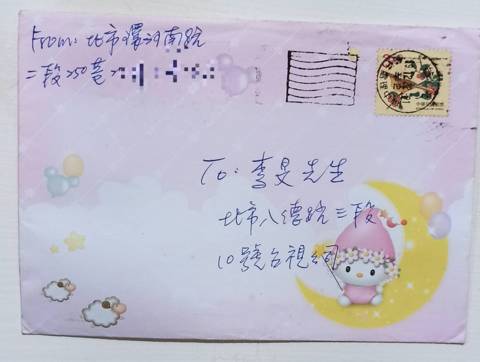 From: 北市環河南路
二段250巷
To: 李旻先生
北市八德路三段
10號台視公司